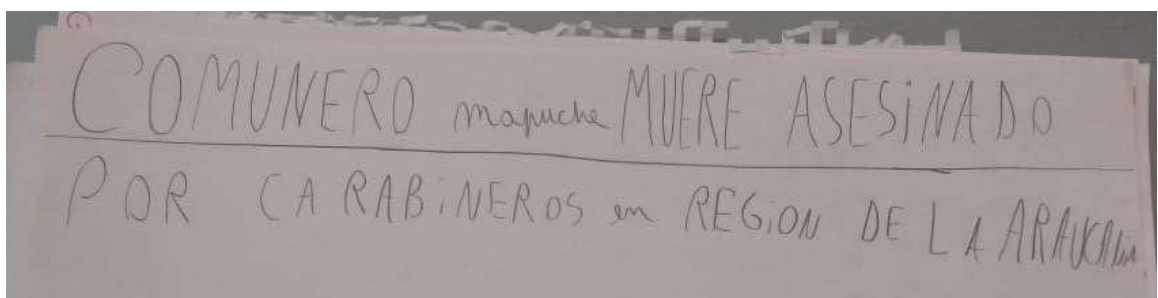 COMUNERO mapuche MUERE ASESiNADO
POR CARABiNEROS en REGiON DE LA ARAUCANIA